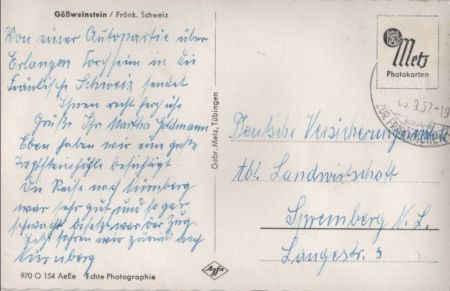 Gößweinstein / Fränk. Schweiz
Von einer Autopartie über
Erlangen Forchheim in die
Fränkische Schweiz sendet
Ihnen recht herzliche
Grüße Ihr
Eben haben wir eine große
Tropfsteinhöhle besichtigt.
Die Reise nach Nürnberg
war sehr gut und sogar
schwach besetzt war der Zug.
Jetzt fahren wir zurück nach
Nürnberg
970 O 154 AeEe Echte Photographie
Gebr. Metz, Tübingen
Agfa
Metz
Photokarten
9.57-19
Deutsche Versicherungsanstalt
Abt. Landwirtschaft
Spremberg N. L.
Langestr. 3